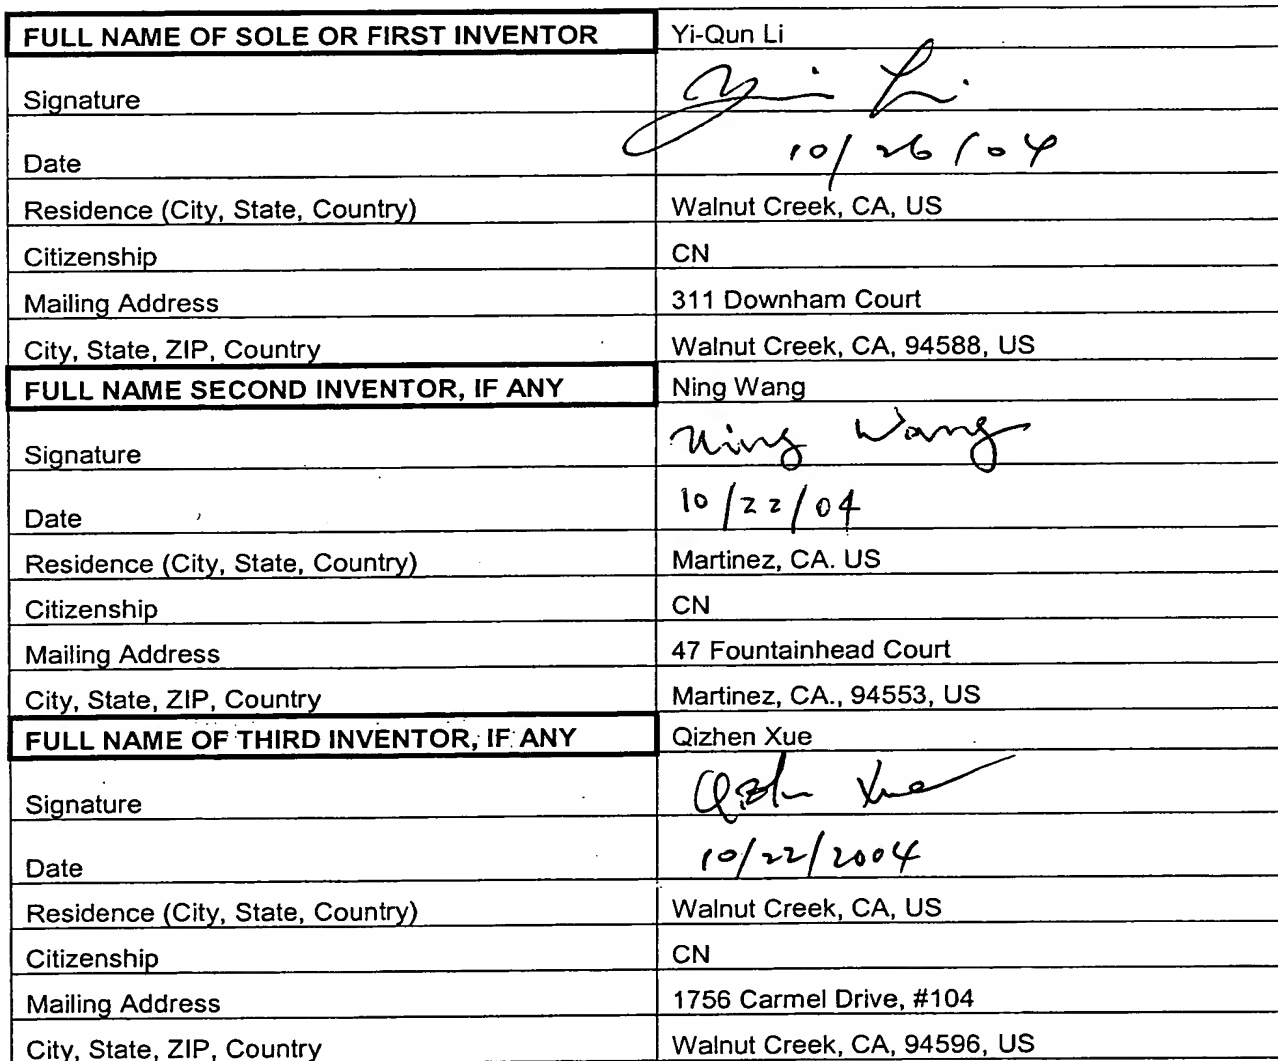 FULL NAME OF SOLE OR FIRST INVENTOR Yi-Qun Li
Signature
Date 10/26/04
Residence (City, State, Country) Walnut Creek, CA, US
Citizenship CN
Mailing Address 311 Downham Court
City, State, ZIP, Country Walnut Creek, CA, 94588, US
FULL NAME SECOND INVENTOR, IF ANY Ning Wang
Signature Ning Wang
Date 10/22/04
Residence (City, State, Country) Martinez, CA. US
Citizenship CN
Mailing Address 47 Fountainhead Court
City, State, ZIP, Country Martinez, CA., 94553, US
FULL NAME OF THIRD INVENTOR, IF ANY Qizhen Xue
Signature Xue
Date 10/22/2004
Residence (City, State, Country) Walnut Creek, CA, US
Citizenship CN
Mailing Address 1756 Carmel Drive, #104
City, State, ZIP, Country Walnut Creek, CA, 94596, US